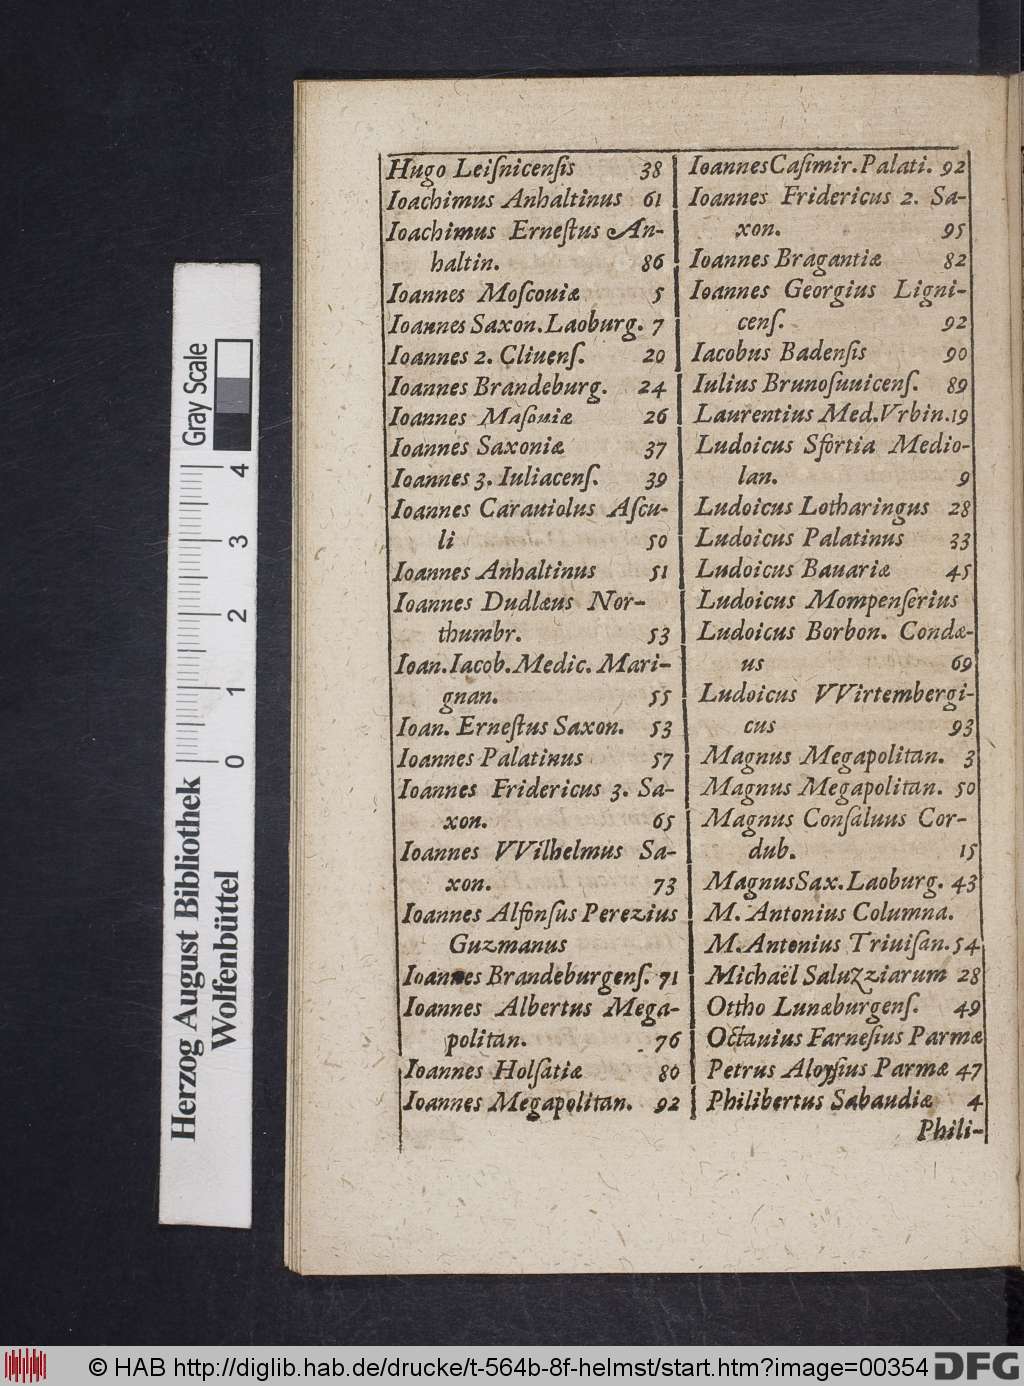 Hugo Leiſnicenſis 38
Ioachimus Anhaltinus 61
Ioachimus Erneſtus An-
haltin. 86
Ioannes Moſcouiæ 5
Ioannes Saxon. Laoburg. 7
Ioannes 2. Cliuenſ. 20
Ioannes Brandeburg. 24
Ioannes Maſouiæ 26
Ioannes Saxoniæ 37
Ioannes 3. Iuliacenſ. 39
Ioannes Carauiolus Aſcu-
li 50
Ioannes Anhaltinus 51
Ioannes Dudlæus Nor-
thumbr. 53
Ioan. Iacob. Medic. Mari-
gnan. 55
Ioan. Erneſtus Saxon. 53
Ioannes Palatinus 57
Ioannes Fridericus 3. Sa-
xon. 65
Ioannes VVilhelmus Sa-
xon. 73
Ioannes Alfonſus Perezius
Guzmanus
Ioannes Brandeburgenſ. 71
Ioannes Albertus Mega-
politan. 76
Ioannes Holſatiæ 80
Ioannes Megapolitan. 92
Ioannes Caſimir. Palati. 92
Ioannes Fridericus 2. Sa-
xon. 95
Ioannes Bragantiæ 82
Ioannes Georgius Ligni-
cenſ. 92
Iacobus Badenſis 90
Iulius Brunoſuuicenſ. 89
Laurentius Med. Vrbin. 19
Ludoicus Sfortia Medio-
lan. 9
Ludoicus Lotharingus 28
Ludoicus Palatinus 33
Ludoicus Bauariæ 45
Ludoicus Mompenſerius
Ludoicus Borbon. Condæ-
us 69
Ludoicus VVirtembergi-
cus 93
Magnus Megapolitan. 3
Magnus Megapolitan. 50
Magnus Conſaluus Cor-
dub. 15
Magnus Sax. Laoburg. 43
M. Antonius Columna.
M. Antonius Triuiſan. 54
Michaël Saluzziarum 28
Ottho Lunæburgenſ. 49
Octauius Farneſius Parmæ
Petrus Aloyſius Parmæ 47
Philibertus Sabaudiæ 4
Phili-
Herzog August Bibliothek
Wolfenbüttel
0 1 2 3 4
Gray Scale
© HAB http://diglib.hab.de/drucke/t-564b-8f-helmst/start.htm?image=00354
DFG